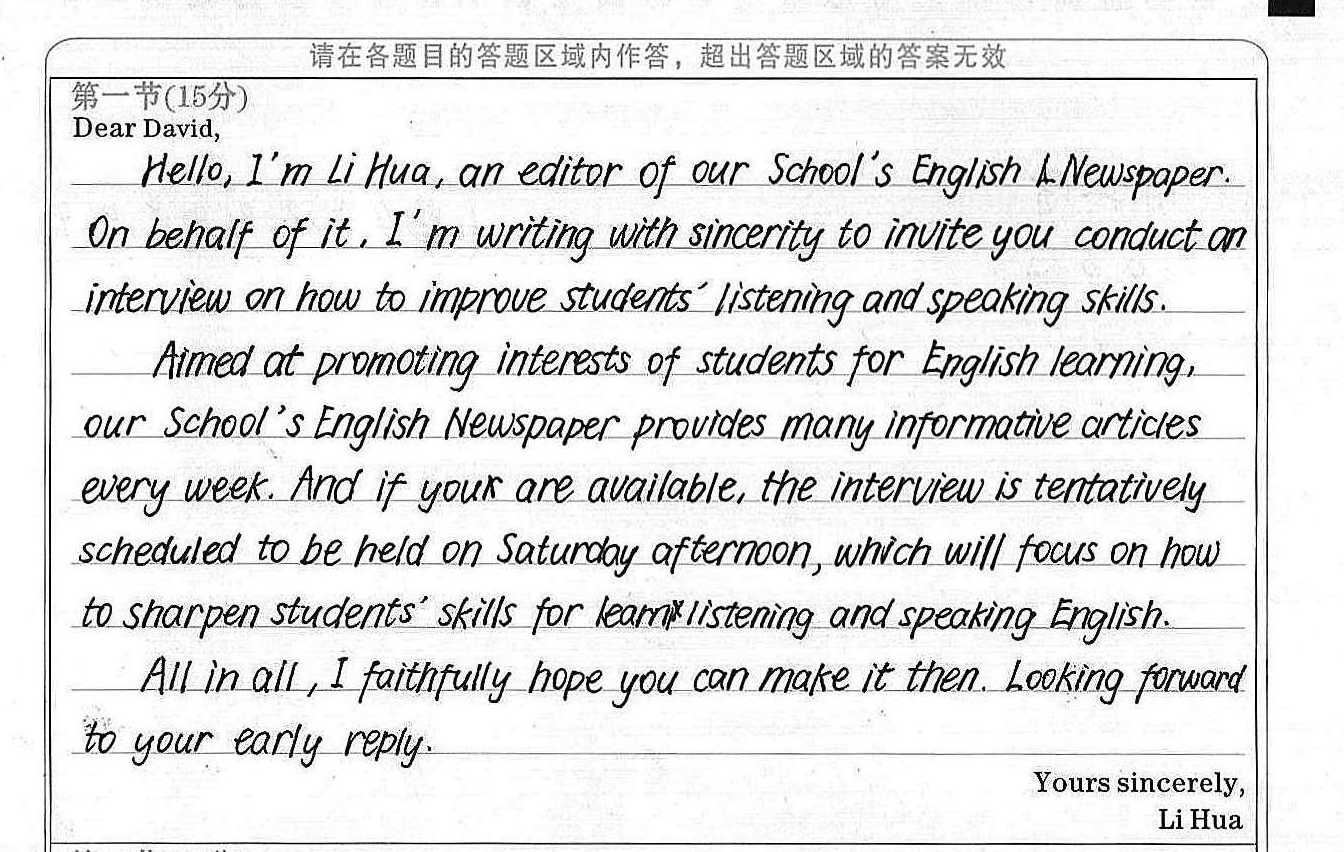 请在各题目的答题区域内作答，超出答题区域的答案无效
第一节(15分)
Dear David,
Hello, I'm Li Hua, an editor of our School's English Newspaper.
On behalf of it, I'm writing with sincerity to invite you conduct an
interview on how to improve students' listening and speaking skills.
Aimed at promoting interests of students for English learning,
our School's English Newspaper provides many informative articles
every week. And if you are available, the interview is tentatively
scheduled to be held on Saturday afternoon, which will focus on how
to sharpen students' skills for listening and speaking English.
All in all, I faithfully hope you can make it then. Looking forward
to your early reply.
Yours sincerely,
Li Hua